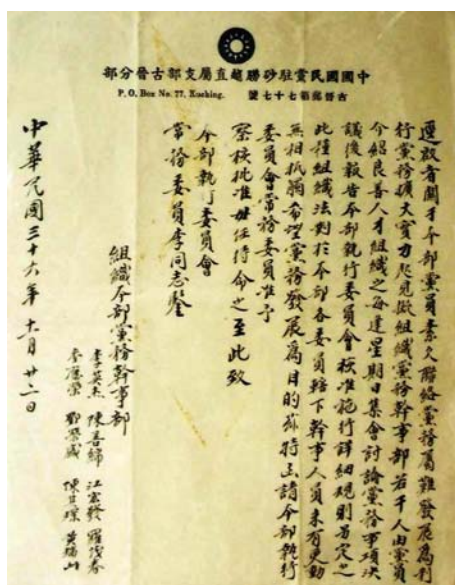 中國國民黨駐砂朥越直屬支部古晉分部
P. O. Box No. 77, Kuching.
古晉郵箱七十七號
逕啟者關于本部黨員素久聯絡黨務屬難發展為利
行黨務擴大實力起見擬組織黨務幹事部若干人由黨員
介紹良善人才組織之每逢星期日集會討論黨務事項決
議後報告本部執行委員會核准施行詳細規則另定之
此種組織法對於本部各委員轄下幹事人員未有更動
無相抵觸希望黨務發展為目的茲特函請本部執行
委員會常務委員准予
察核批准毋任待命之至此致
本部執行委員會
常務委員李同志鑒
組織本部黨務幹事部
羅俊春 黃福山
江宏發 陳其琛
陳喜錦 鄧榮盛
李英杰 李應榮
中華民國三十六年十一月廿二日